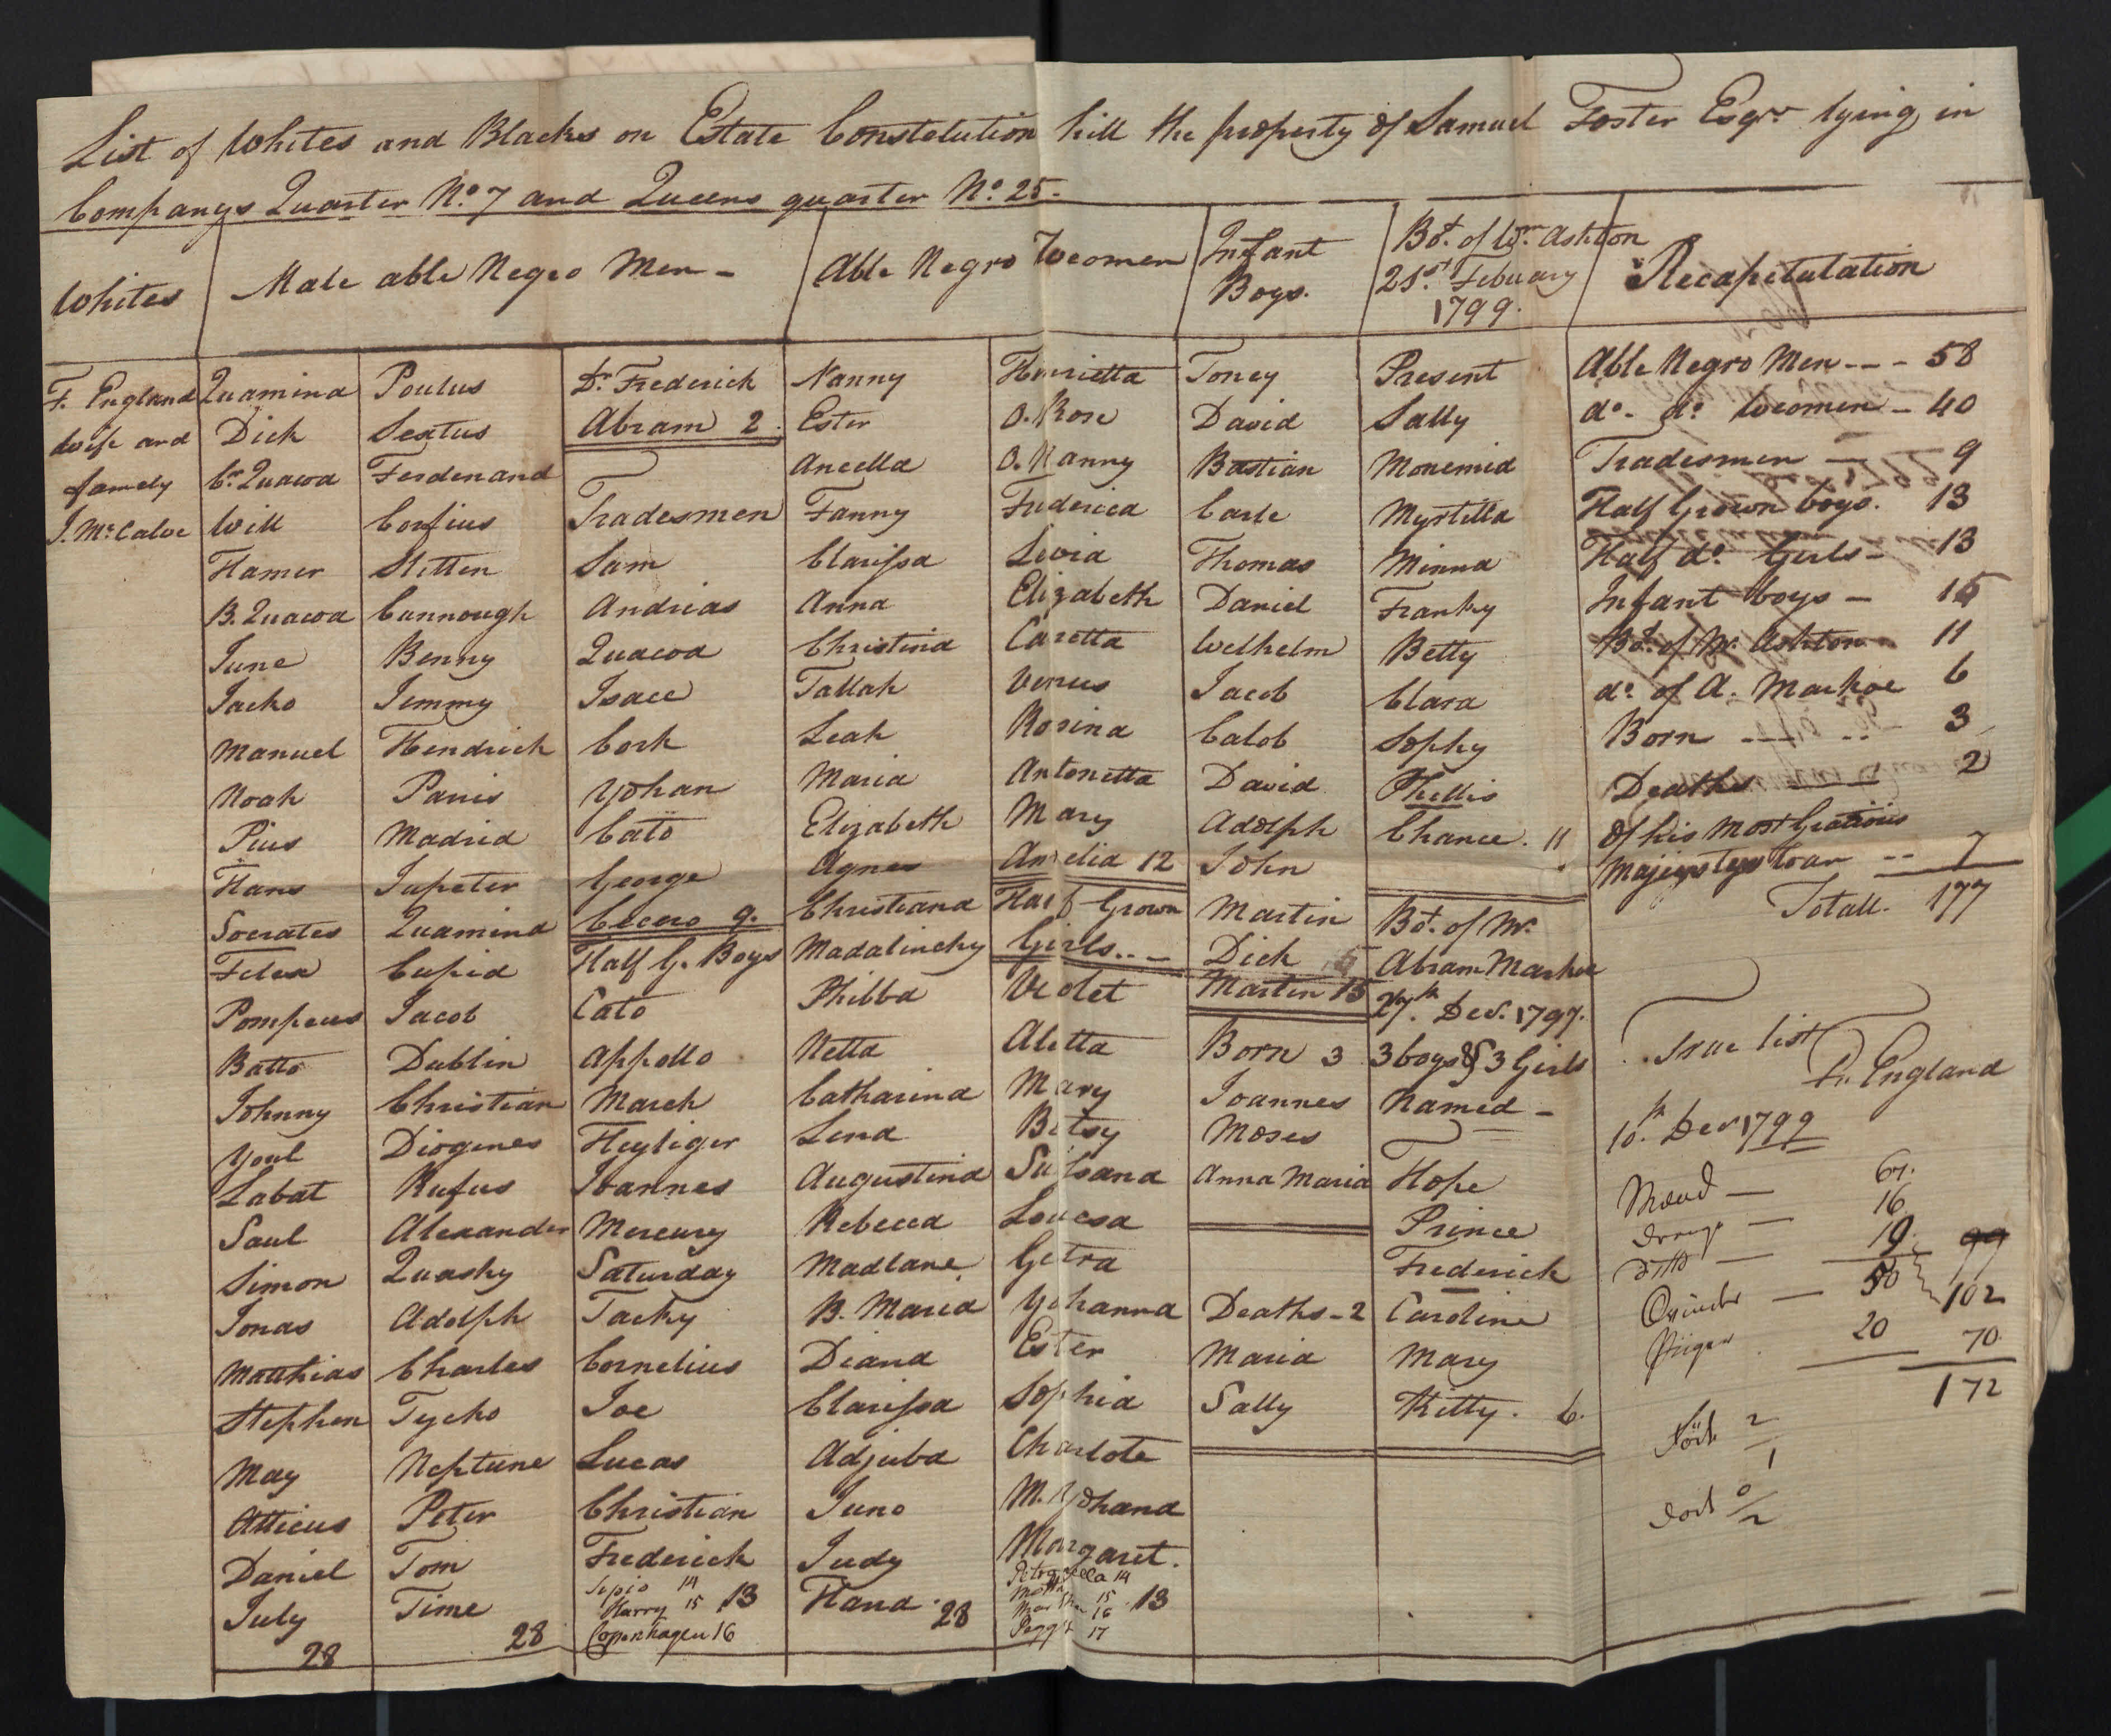 List of Whites and Blacks on Estate Constelution hill the property of Samuel Foster Esqr. lying in
Companys Quarter No. 7 and Queens quarter No. 25.
Whites
Male able Negro Men -
Able Negro Weomen
Infant
Boys.
Bot. of Wm. Ashton
21st. Febuary
1799.
Recapetulation
F. England
Wife and
famely
J. McCalve
Quamina
Dick
Cr. Quacoa
Will
Hamer
B. Quacoa
June
Jacko
Manuel
Noah
Pius
Hans
Socrates
Felex
Pompeus
Batto
Johnny
Youl
Labat
Saul
Simon
Jonas
Matthias
Stephen
May
Atticus
Daniel
July
28
Poulus
Sextus
Ferdenand
Corfius
Stetten
Cannough
Benny
Jemmy
Hendrick
Panis
Madrid
Jupeter
Quamina
Cupid
Jacob
Dublin
Christian
Diogenes
Rufus
Alexander
Quashy
Adolph
Charles
Tycho
Neptune
Peter
Tom
Time
28
Dr. Frederick
Abram 2.
Tradesmen
Sam
Andrias
Quacoa
Isace
Cork
Yohan
Cato
George
Cecero 9.
Half G. Boys
Cato
Appollo
March
Heyliger
Joannes
Mercury
Saturday
Tacky
Cornelius
Joe
Lucas
Christian
Frederick 13
Sepio 14
Harry 15
Copenhagen 16
Nanny
Ester
Ancella
Fanny
Clarissa
Anna
Christina
Tallah
Leah
Maria
Elizabeth
Agnes
Christiana
Madalincky
Phibba
Netta
Catharina
Lena
Augustina
Rebecca
Madlane
B. Maria
Diana
Clarissa
Adjuba
Juno
Judy
Hana. 28
Henrietta
O. Rose
O. Nanny
Frederica
Levia
Elizabeth
Caretta
Venus
Rosina
Antonetta
Mary
Amelia 12
Half Grown
Girls..
Violet
Aletta
Mary
Betsy
Sussana
Louesa
Getra
Yohanna
Ester
Sophia
Charlote
M. Yohana
Margaret. 13
Petronella 14
15
16
Peggy 17
Toney
David
Bastian
Carle
Thomas
Daniel
Welhelm
Jacob
Calob
David
Adolph
John
Martin
Dick
Martin 15
Born 3
Joannes
Moses
Anna Maria
Deaths - 2
Maria
Sally
Present
Sally
Monemia
Myrtilla
Minna
Franky
Betty
Clara
Sophy
Phillis
Chance. 11
Bot. of Mr.
Abram Markoe
27th. Decr. 1797.
3 boys & 3 Girls
Named -
Hope
Prince
Frederick
Caroline
Mary
Kitty. 6.
Able Negro Men -- - 58
do. do. Weomen - 40
Tradesmen - 9
Half Grown boys. 13
Half do. Girls - 13
Infant boys - 15
Bot. of Mr. Ashton 11
do. of A. Markoe 6
Born 3
Deaths 2
Of his Most Gratious
Majestys loan -- 7
Totall. 177
True list
F. England
10th. Decr 1799
Mænd - 67.
Drenge - 16
ditto - 19 99
Qvinder - 50 102
Piiger 20 70
172
født 2/1
død 0/2